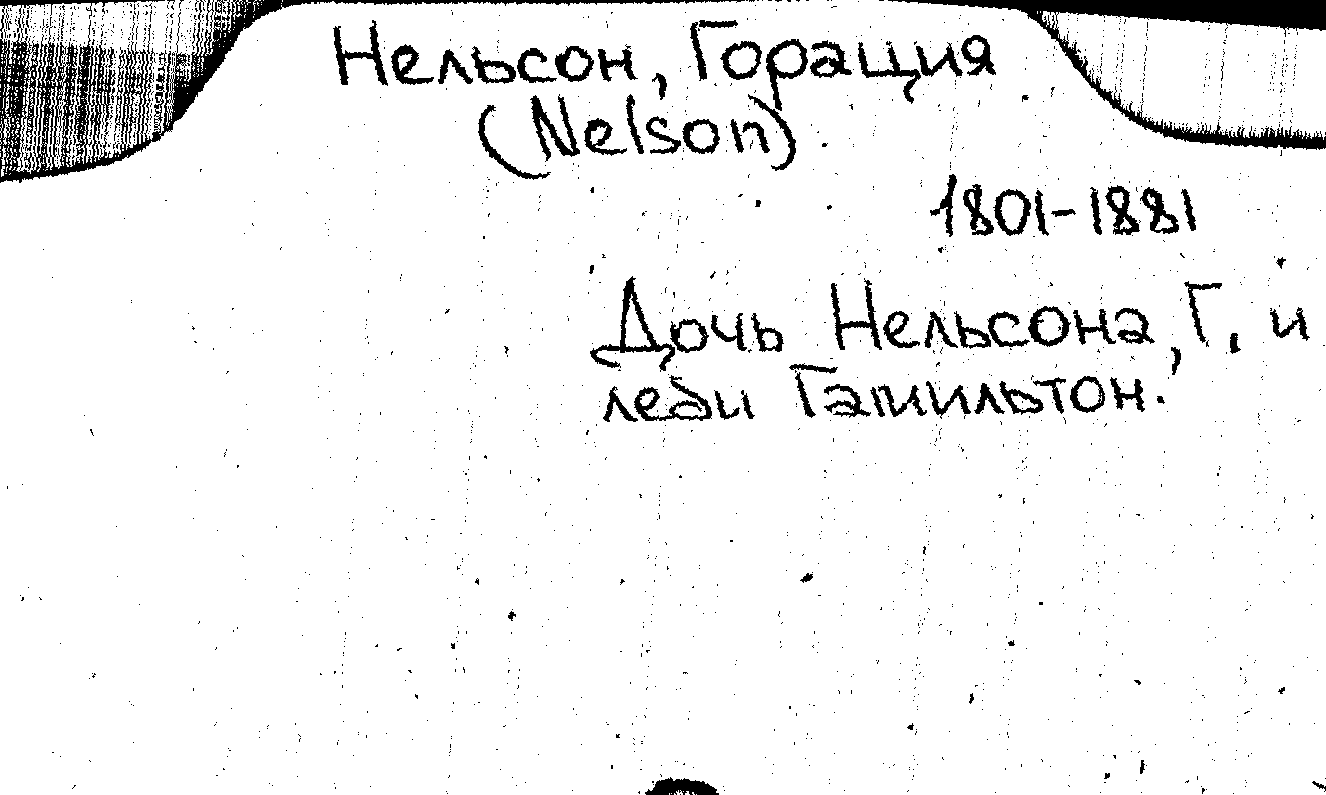 Нельсон, Горация
(Nelson)
1801-1881
Дочь Нельсона, Г. и
леди Гамильтон.